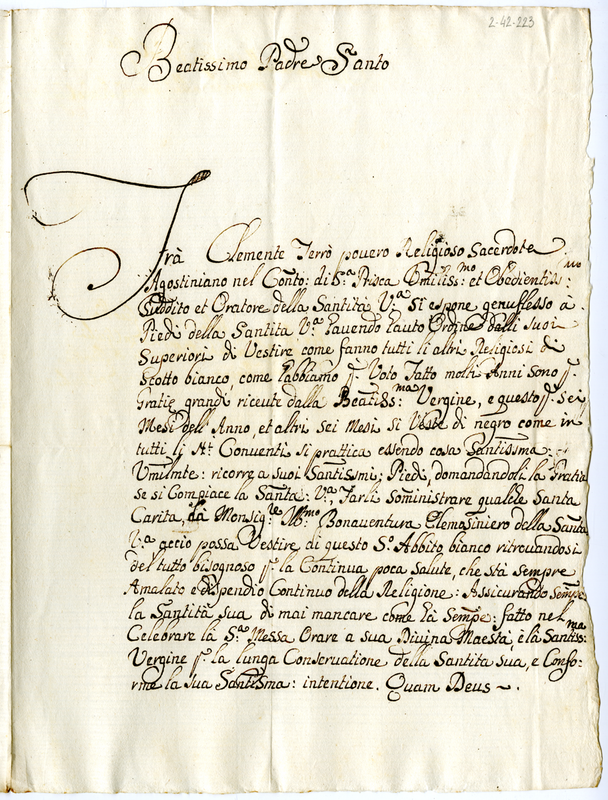 2-42-223
Beatissimo Padre Santo
Frà Clemente Ferrò povero Religioso Sacerdote
Agostiniano nel Conto: di S.a Prisca Umiliss:mo et Obedientiss:mo
Suddito et Oratore della Santità V.a Si espone genuflesso à
Piedi della Santita V.a havendo hauto Ordine dalli Suoi
Superiori di Vestire come fanno tutti li altri Religiosi di
Scotto bianco, come habbiamo p. Voto fatto molti Anni sono p.
Gratie grandi riceute dalla Beatiss:ma Vergine, e questo p. sei
Mesi dell'Anno, et altri sei Mesi si Veste di negro come in
tutti li Ari Conventi si prattica essendo cosa Santissma:
Umilmte: ricorre a suoi Santissmi: Piedi, domandandoli la Gratia
se si Compiace la Santa: V.a farli Soministrare qualche Santa
Carita, da Monsig:re Ill:mo Bonaventura Elemosiniero della Santa
V.a accio possa Vestire di questo S.o Abbito bianco ritrovandosi
del tutto bisognoso p. la Continua poca Salute, che stà sempre
Amalato e dispendio Continuo della Religione: Assicurando sempe
la Santità sua di mai mancare come hà Sempe: fatto nel
Celebrare la S.a Messa Orare a sua Divina Maestà, è là Santiss:ma
Vergine p. la lunga Conservatione della Santita sua, e Confo-
rme la sua Santissma: intentione. Quam Deus ~.